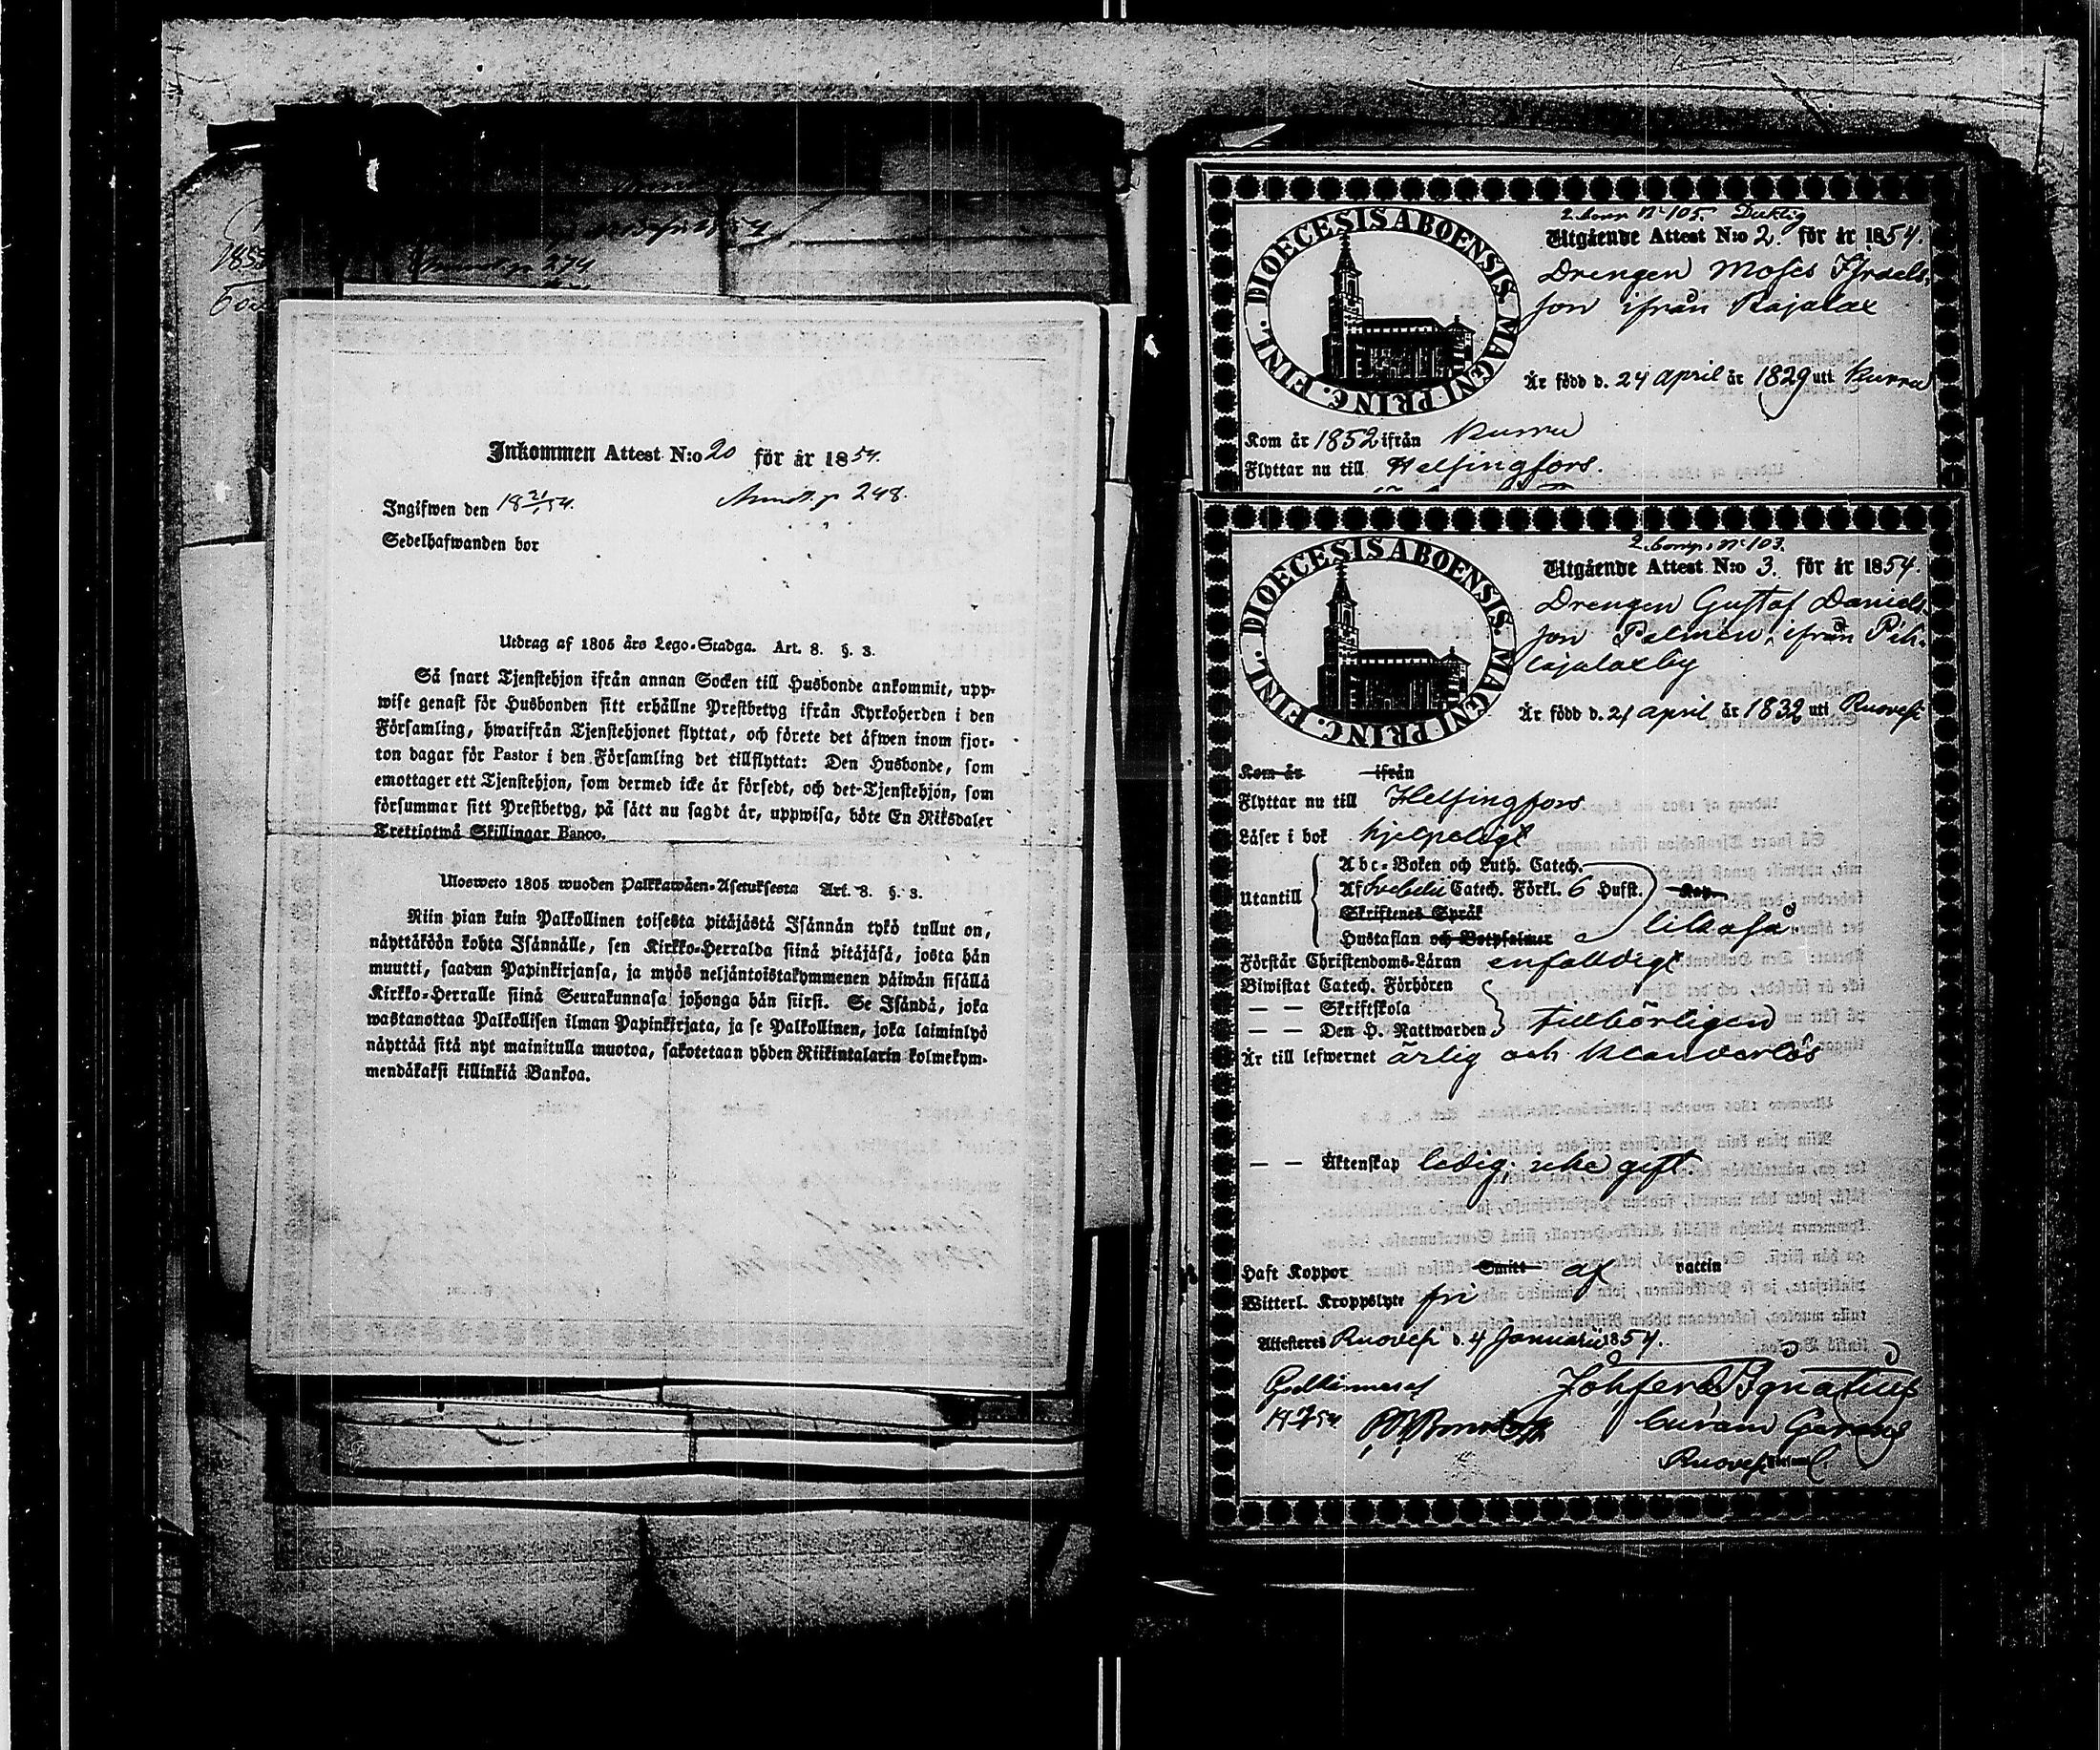 1853
Inkommen Attest N:o 20 för år 1854.
Ingifwen den 18 21/1 54. p 248.
Sedelhafwanden bor
Utdrag af 1805 års Lego-Stadga. Art. 8. §. 3.
Så snart Tjenstehjon ifrån annan Socken till Husbonde ankommit, upp-
wise genast för Husbonden sitt erhållne Prestbetyg ifrån Kyrkoherden i den
Församling, hwarifrån Tjenstehjonet flyttat, och förete det äfwen inom fjor-
ton dagar för Pastor i den Församling det tillflyttat: Den Husbonde, som
emottager ett Tjenstehjon, som dermed icke är försedt, och det Tjenstehjon, som
försummar sitt Prestbetyg, på sätt nu sagdt är, uppwisa, böte En Riksdaler
Trettiotwå Skillingar Banco.
Ulosweto 1805 wuoden Palkkawäen-Asetuksesta Art. 8. §. 3.
Niin pian kuin Palkollinen toisesta pitäjästä Isännän tykö tullut on,
näyttäköön kohta Isännälle, sen Kirkko-Herralda siinä pitäjäsä, josta hän
muutti, saadun Papinkirjansa, ja myös neljäntoistakymmenen päiwän sisällä
Kirkko-Herralle siinä Seurakunnasa johonga hän siirsi. Se Isändä, joka
wastanottaa Palkollisen ilman Papinkirjata, ja se Palkollinen, joka laiminlyö
näyttää sitä nyt mainitulla muotoa, sakotetaan yhden Riikintalarin kolmekym-
mendäkaksi killinkiä Bankoa.
DIOECESIS ABOENSIS. MAGNI PRINC. FINL.
2. borg. N:o 105. Duktig
Utgående Attest N:o 2. för år 1854.
Drengen Moses Israels-
son ifrån Kajalax
Är född d. 24 april år 1829 uti Kurru
Kom år 1852 ifrån Kurru
Flyttar nu till Helsingfors.
DIOECESIS ABOENSIS. MAGNI PRINC. FINL.
2. borg. N:o 103.
Utgående Attest N:o 3. för år 1854.
Drengen Gustaf Daniels-
son Palmén, ifrån Pih-
lajalaxby
Är född d. 21 april år 1832 uti Ruovesi
Kom år ifrån
Flyttar nu till Helsingfors
Läser i bok hjelpeligt
Abc-Boken och Luth. Catech.
Utantill Af Svebelii Catech. Förkl. 6 Hufst.
Skriftenes Språk
Hustaflan och Botpsalmer likaså
Förstår Christendoms-Läran enfaldigt
Biwistat Catech. Förhören
— — Skriftskola
— — Den H. Nattwarden tillbörligen
Är till lefwernet ärlig och klanderlös
— — Äktenskap ledig: icke gift
Haft Koppor Smitt af vattin
Witterl. Kroppslyte fri
Attesteres Ruovesi d. 4 Januarii 1854.
Godkännes af Joh Ferd Ignatius